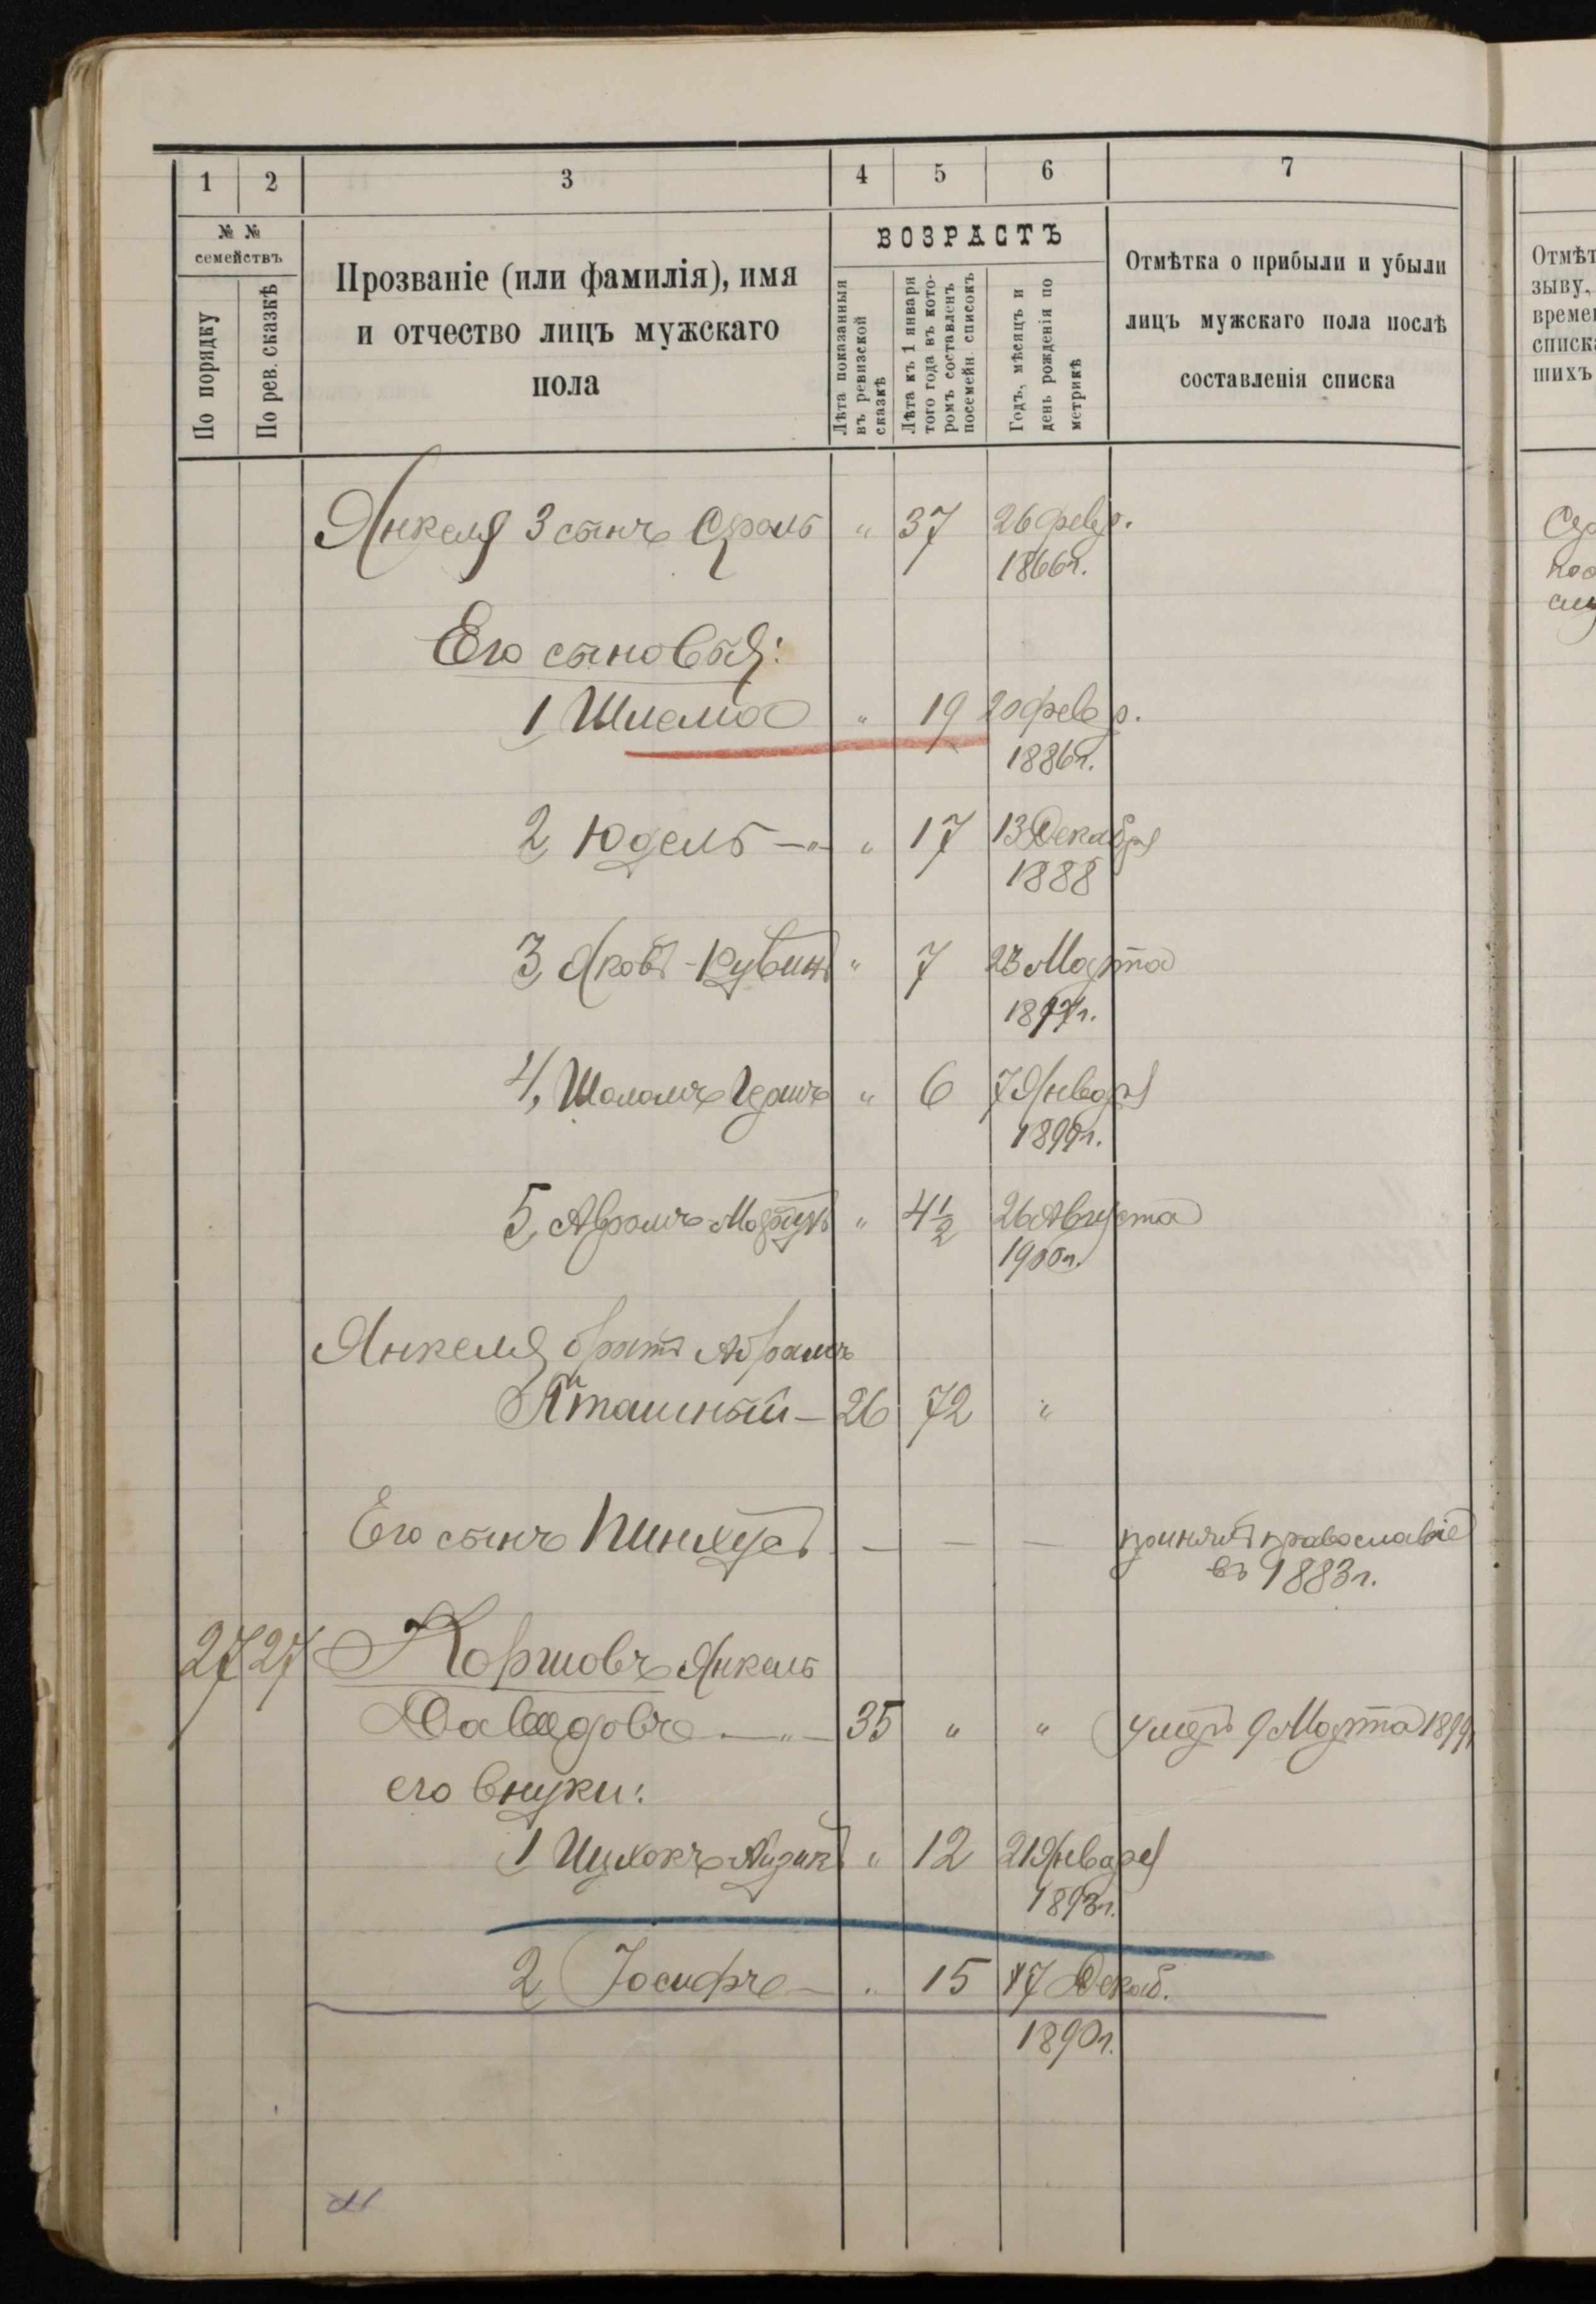 1 2 3 4 5 6 7
№ №
семействъ
По порядку
По рев. сказкѣ
Прозваніе (или фамилія), имя
и отчество лицъ мужскаго
пола
ВОЗРАСТЪ
Лѣта показанныя
въ ревизской
сказкѣ
Лѣта къ 1 января
того года въ кото-
ромъ составленъ
посемейн. списокъ
Годъ, мѣсяцъ и
день рожденія по
метрикѣ
Отмѣтка о прибыли и убыли
лицъ мужскаго пола послѣ
составленія списка
Отмѣт
зыву,
времен
списка
шихъ
Янкеля 3 сынъ Сроль " 37 26 февр.
1866 г.
Его сыновья:
1, Шлема " 19 20 февр.
1886 г.
2, Юдель —"— " 17 13 Декабря
1888
3, Яковъ- " 7 23 Марта
4, Шоломъ " 6 7 Января
1899 г.
5, Абрамъ " 4 1/2 26 Августа
1900 г.
Янкеля братъ Абрамъ
26 72 "
Его сынъ Пинхусъ — — — принялъ православіе
въ 1883 г.
27 27 Коршовъ Янкель
Давидовъ —"— 35 " " умеръ 9 Марта 1899
его внуки:
1, Ицхокъ Айзикъ " 12 21 Января
1893 г.
2, Іосифъ — " 15 17 Декаб.
1890 г.